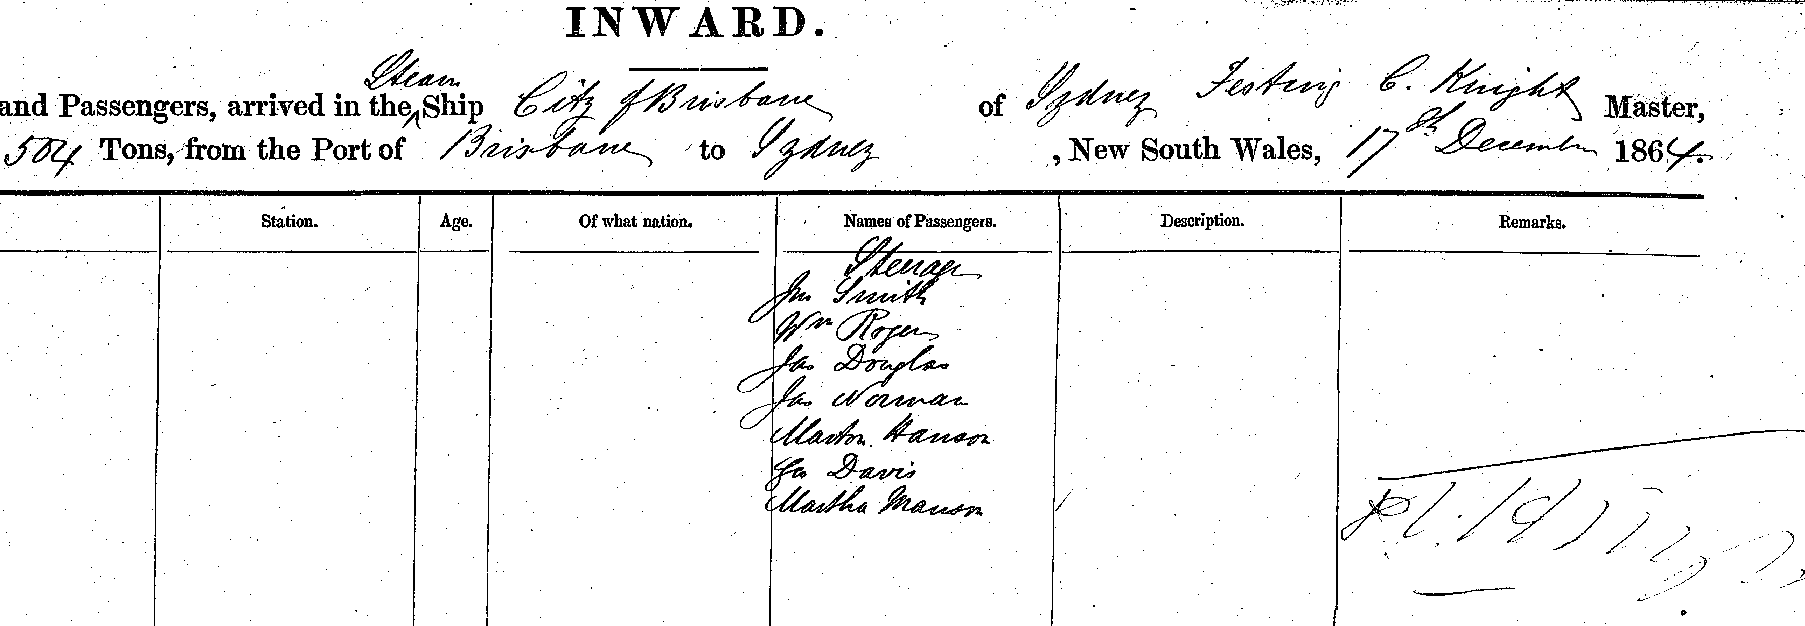 INWARD.
and Passengers, arrived in the Steam Ship City of Brisbane of Sydney Festing C. Knight Master,
504 Tons, from the Port of Brisbane to Sydney , New South Wales, 17th December 1864.
Station. Age. Of what nation. Names of Passengers. Description. Remarks.
Steerage
Jno Smith
Wm Rogers
Jas Douglas
Jas Norman
Marton Hanson
Davis
Martha Manson